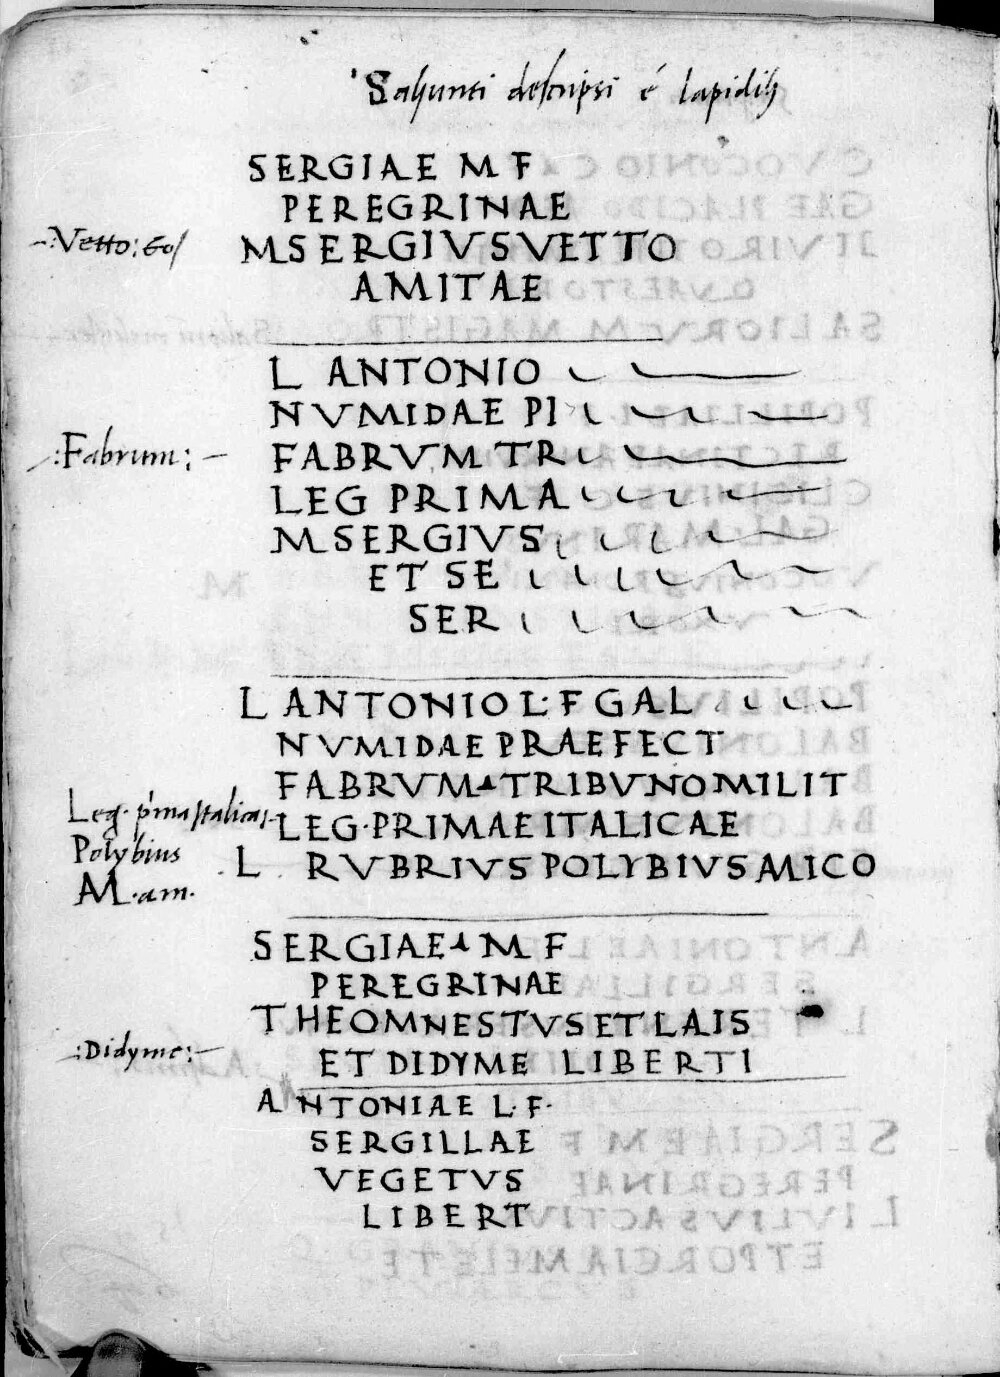 Sahunti descripsi é lapidib
SERGIAE M F
PEREGRINAE
Vetto:
MSERGIVSVETTO
AMITAE
L ANTONIO
NVMIDAE PI
:Fabrum:
FABRVM TR
LEG PRIMA
MSERGIVS
ET SE
SER
L ANTONIO L·F GAL
NVMIDAE PRAEFECT
FABRVM TRIBVNOMILIT
Leg. prima Italica
LEG·PRIMAEITALICAE
Polybius
L RVBRIVS POLYBIVS AMICO
M. am.
SERGIAE M F
PEREGRINAE
THEOMNESTVSETLAIS
:Didyme:
ET DIDYME LIBERTI
ANTONIAE L·F·
SERGILLAE
VEGETVS
LIBERT